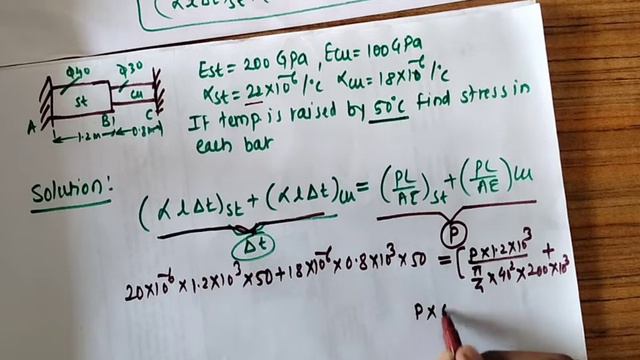 (α l Δt)st
Φ40 Φ30
st cu
A B C
1.2m 0.8m
Est = 200 GPa, Ecu = 100 GPa
αst = 22×10⁻⁶/°C αcu = 18×10⁻⁶/°C
If temp is raised by 50°C find stress in
each bar
Solution:
(α l Δt)st + (α l Δt)cu = (PL/AE)st + (PL/AE)cu
Δt P
20×10⁻⁶ × 1.2×10³ × 50 + 18×10⁻⁶ × 0.8×10³ × 50 = [P×1.2×10³ / π/4 × 40² × 200×10³ +
P×